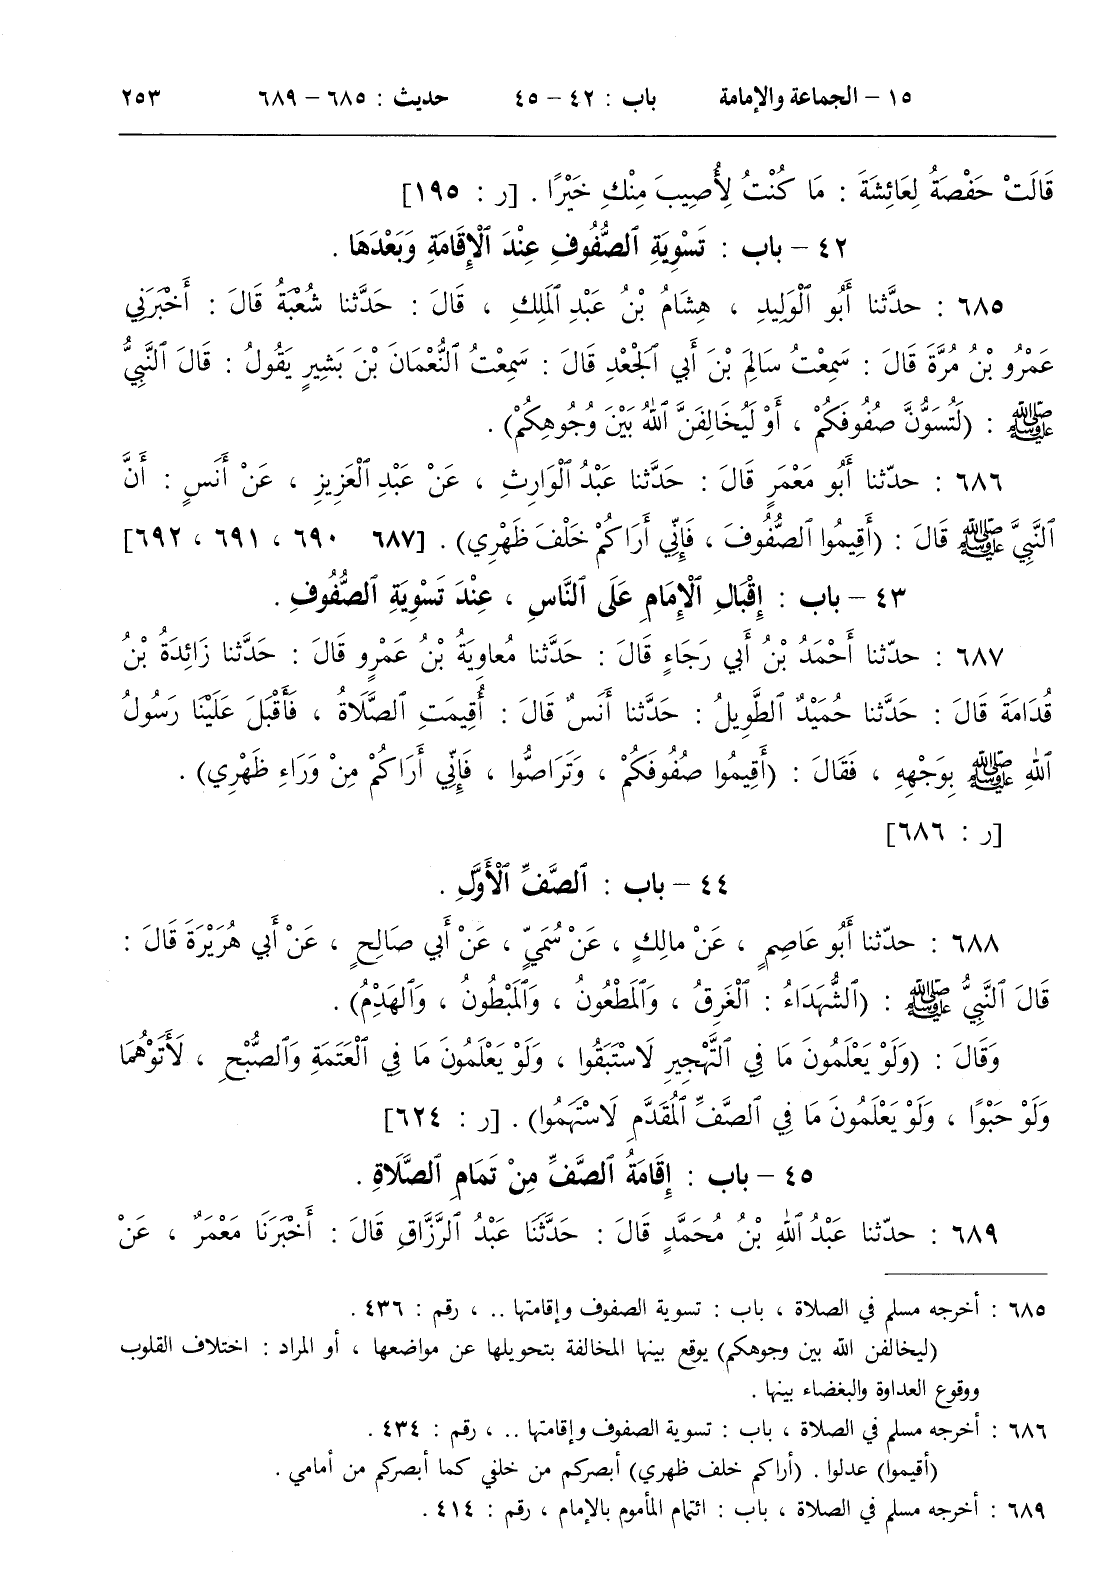 ١٥ – الجماعة والإمامة باب : ٤٢ – ٤٥ حديث : ٦٨٥ – ٦٨٩ ٢٥٣
قَالَتْ حَفْصَةُ لِعَائِشَةَ : مَا كُنْتُ لِأُصِيبَ مِنْكِ خَيْرًا . [ر : ١٩٥]
٤٢ – باب : تَسْوِيَةِ ٱلصُّفُوفِ عِنْدَ ٱلْإِقَامَةِ وَبَعْدَهَا .
٦٨٥ : حدَّثنا أَبُو ٱلْوَلِيدِ ، هِشَامُ بْنُ عَبْدِ ٱلْمَلِكِ ، قَالَ : حَدَّثنا شُعْبَةُ قَالَ : أَخْبَرَنِي
عَمْرُو بْنُ مُرَّةَ قَالَ : سَمِعْتُ سَالِمَ بْنَ أَبِي ٱلْجَعْدِ قَالَ : سَمِعْتُ ٱلنُّعْمَانَ بْنَ بَشِيرٍ يَقُولُ : قَالَ ٱلنَّبِيُّ
ﷺ : (لَتُسَوُّنَّ صُفُوفَكُمْ ، أَوْ لَيُخَالِفَنَّ ٱللهُ بَيْنَ وُجُوهِكُمْ) .
٦٨٦ : حدّثنا أَبُو مَعْمَرٍ قَالَ : حَدَّثنا عَبْدُ ٱلْوَارِثِ ، عَنْ عَبْدِ ٱلْعَزِيزِ ، عَنْ أَنَسٍ : أَنَّ
ٱلنَّبِيَّ ﷺ قَالَ : (أَقِيمُوا ٱلصُّفُوفَ ، فَإِنِّي أَرَاكُمْ خَلْفَ ظَهْرِي) . [٦٨٧ ٦٩٠ ، ٦٩١ ، ٦٩٢]
٤٣ – باب : إِقْبَالِ ٱلْإِمَامِ عَلَى ٱلنَّاسِ ، عِنْدَ تَسْوِيَةِ ٱلصُّفُوفِ .
٦٨٧ : حدّثنا أَحْمَدُ بْنُ أَبِي رَجَاءٍ قَالَ : حَدَّثنا مُعاوِيَةُ بْنُ عَمْرٍو قَالَ : حَدَّثنا زَائِدَةُ بْنُ
قُدَامَةَ قَالَ : حَدَّثنا حُمَيْدٌ ٱلطَّوِيلُ : حَدَّثنا أَنَسٌ قَالَ : أُقِيمَتِ ٱلصَّلَاةُ ، فَأَقْبَلَ عَلَيْنَا رَسُولُ
ٱللهِ ﷺ بِوَجْهِهِ ، فَقَالَ : (أَقِيمُوا صُفُوفَكُمْ ، وَتَرَاصُّوا ، فَإِنِّي أَرَاكُمْ مِنْ وَرَاءِ ظَهْرِي) .
[ر : ٦٨٦]
٤٤ – باب : ٱلصَّفِّ ٱلْأَوَّلِ .
٦٨٨ : حدّثنا أَبُو عَاصِمٍ ، عَنْ مالِكٍ ، عَنْ سُمَيٍّ ، عَنْ أَبِي صَالِحٍ ، عَنْ أَبِي هُرَيْرَةَ قَالَ :
قَالَ ٱلنَّبِيُّ ﷺ : (ٱلشُّهَدَاءُ : ٱلْغَرِقُ ، وَٱلْمَطْعُونُ ، وَٱلْمَبْطُونُ ، وَٱلهَدْمُ) .
وَقَالَ : (وَلَوْ يَعْلَمُونَ مَا فِي ٱلتَّهْجِيرِ لَاسْتَبَقُوا ، وَلَوْ يَعْلَمُونَ مَا فِي ٱلْعَتَمَةِ وَٱلصُّبْحِ ، لَأَتَوْهُمَا
وَلَوْ حَبْوًا ، وَلَوْ يَعْلَمُونَ مَا فِي ٱلصَّفِّ ٱلْمُقَدَّمِ لَاسْتَهَمُوا) . [ر : ٦٢٤]
٤٥ – باب : إِقَامَةُ ٱلصَّفِّ مِنْ تَمَامِ ٱلصَّلَاةِ .
٦٨٩ : حدّثنا عَبْدُ ٱللهِ بْنُ مُحَمَّدٍ قَالَ : حَدَّثَنَا عَبْدُ ٱلرَّزَّاقِ قَالَ : أَخْبَرَنَا مَعْمَرٌ ، عَنْ
٦٨٥ : أخرجه مسلم في الصلاة ، باب : تسوية الصفوف وإقامتها .. ، رقم : ٤٣٦ .
(ليخالفن الله بين وجوهكم) يوقع بينها المخالفة بتحويلها عن مواضعها ، أو المراد : اختلاف القلوب
ووقوع العداوة والبغضاء بينها .
٦٨٦ : أخرجه مسلم في الصلاة ، باب : تسوية الصفوف وإقامتها .. ، رقم : ٤٣٤ .
(أقيموا) عدلوا . (أراكم خلف ظهري) أبصركم من خلفي كما أبصركم من أمامي .
٦٨٩ : أخرجه مسلم في الصلاة ، باب : ائتمام المأموم بالإمام ، رقم : ٤١٤ .